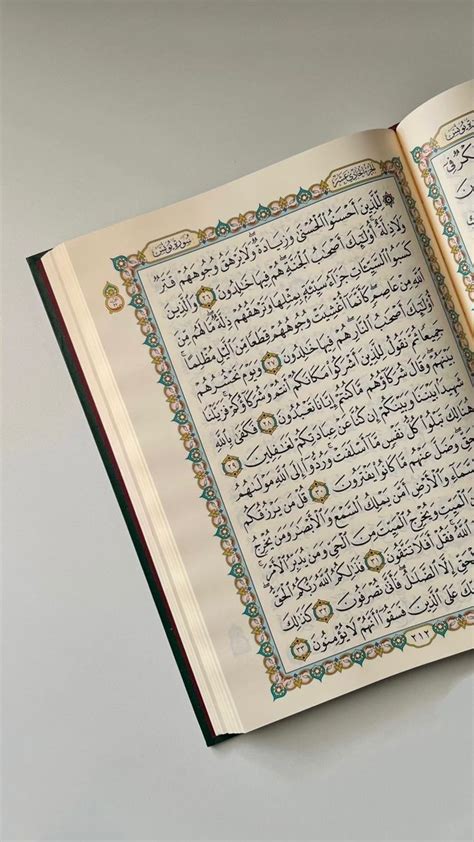 الجزء الحادي عشر
سورة يونس
۞ لِّلَّذِينَ أَحْسَنُوا۟ ٱلْحُسْنَىٰ وَزِيَادَةٌ ۖ وَلَا يَرْهَقُ وُجُوهَهُمْ قَتَرٌ
وَلَا ذِلَّةٌ ۚ أُو۟لَـٰٓئِكَ أَصْحَـٰبُ ٱلْجَنَّةِ ۖ هُمْ فِيهَا خَـٰلِدُونَ ٢٦ وَٱلَّذِينَ
كَسَبُوا۟ ٱلسَّيِّـَٔاتِ جَزَآءُ سَيِّئَةٍۭ بِمِثْلِهَا وَتَرْهَقُهُمْ ذِلَّةٌ ۖ مَّا لَهُم مِّنَ
ٱللَّهِ مِنْ عَاصِمٍ ۖ كَأَنَّمَآ أُغْشِيَتْ وُجُوهُهُمْ قِطَعًا مِّنَ ٱلَّيْلِ مُظْلِمًا ۚ
أُو۟لَـٰٓئِكَ أَصْحَـٰبُ ٱلنَّارِ ۖ هُمْ فِيهَا خَـٰلِدُونَ ٢٧ وَيَوْمَ نَحْشُرُهُمْ
جَمِيعًا ثُمَّ نَقُولُ لِلَّذِينَ أَشْرَكُوا۟ مَكَانَكُمْ أَنتُمْ وَشُرَكَآؤُكُمْ ۚ فَزَيَّلْنَا
بَيْنَهُمْ ۖ وَقَالَ شُرَكَآؤُهُم مَّا كُنتُمْ إِيَّانَا تَعْبُدُونَ ٢٨ فَكَفَىٰ بِٱللَّهِ
شَهِيدًۢا بَيْنَنَا وَبَيْنَكُمْ إِن كُنَّا عَنْ عِبَادَتِكُمْ لَغَـٰفِلِينَ ٢٩
تَبْلُوا۟ كُلُّ نَفْسٍ مَّآ أَسْلَفَتْ ۚ وَرُدُّوٓا۟ إِلَى ٱللَّهِ مَوْلَىٰهُمُ
وَضَلَّ عَنْهُم مَّا كَانُوا۟ يَفْتَرُونَ ٣٠ قُلْ مَن يَرْزُقُكُم
وَٱلْأَرْضِ أَمَّن يَمْلِكُ ٱلسَّمْعَ وَٱلْأَبْصَـٰرَ وَمَن يُخْرِجُ
مِنَ ٱلْمَيِّتِ وَيُخْرِجُ ٱلْمَيِّتَ مِنَ ٱلْحَىِّ وَمَن يُدَبِّرُ ٱلْأَمْرَ ۚ
ٱللَّهُ ۚ فَقُلْ أَفَلَا تَتَّقُونَ ٣١ فَذَٰلِكُمُ ٱللَّهُ رَبُّكُمُ ٱلْحَقُّ ۖ
إِلَّا ٱلضَّلَـٰلُ ۖ فَأَنَّىٰ تُصْرَفُونَ ٣٢ كَذَٰلِكَ
عَلَى ٱلَّذِينَ فَسَقُوٓا۟ أَنَّهُمْ لَا يُؤْمِنُونَ ٣٣
٢١٢